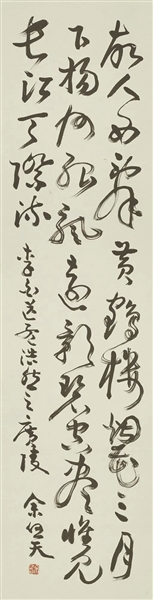 故人西辭黃鶴樓烟花三月
下揚州孤帆遠影碧空盡惟見
長江天際流 李白送孟浩然之廣陵 余任天